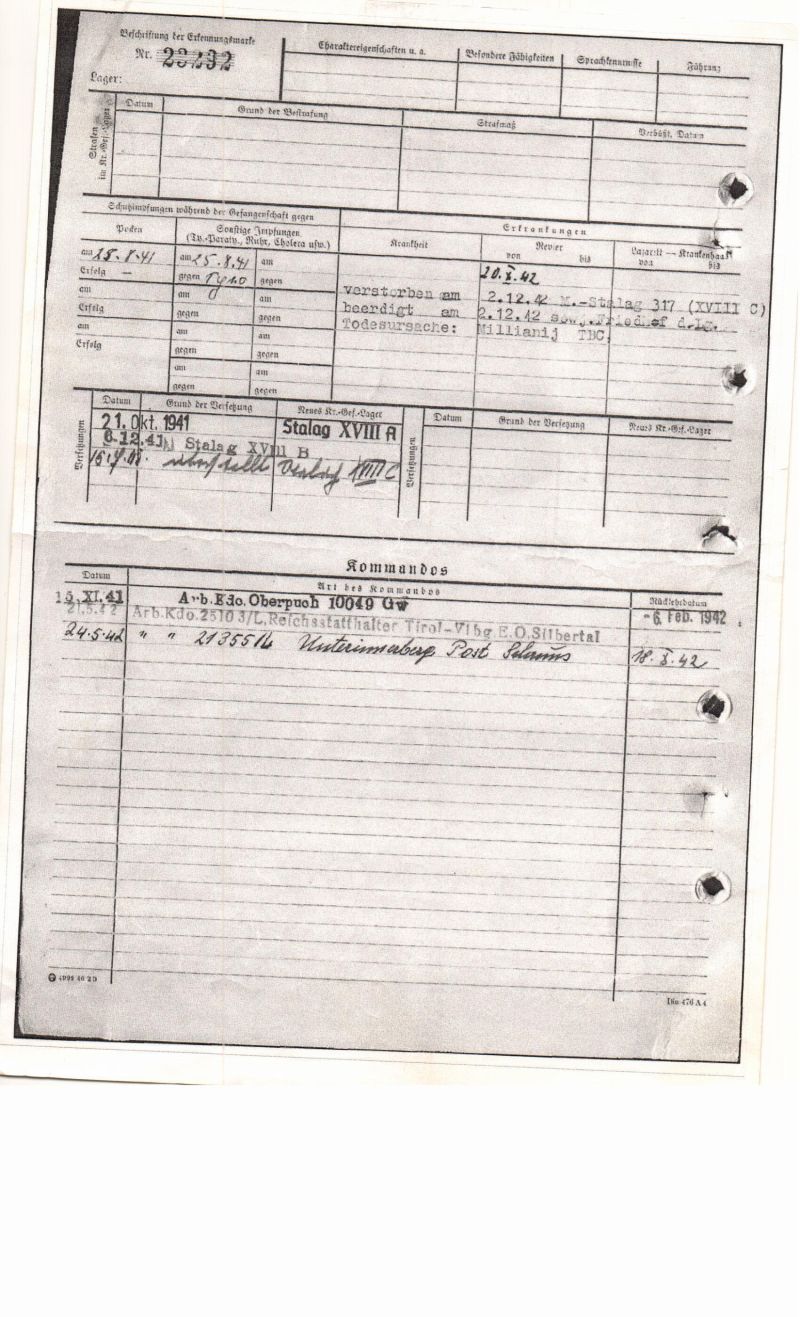 Beschriftung der Erkennungsmarke
Nr. 23232
Lager:
Charaktereigenschaften u. a.
Besondere Fähigkeiten
Sprachkenntnisse
Führung
Strafen im Kr.-Gef.-Lager
Datum
Grund der Bestrafung
Strafmaß
Verbüßt, Datum
Schutzimpfungen während der Gefangenschaft gegen
Erkrankungen
Pocken
Sonstige Impfungen
(Ty.-Paraty., Ruhr, Cholera usw.)
Krankheit
Revier
von bis
Lazarett — Krankenhaus
von bis
am 25.8.41 am 25.8.41 am
Erfolg — gegen Typo gegen
20.X.42
am am am
Erfolg gegen gegen
am am am
Erfolg gegen gegen
am am
gegen gegen
verstorben am 2.12.42 M.-Stalag 317 (XVIII C)
beerdigt am 2.12.42 sowj.Friedhof d.Lg.
Todesursache: Millianij TBC.
Versetzungen
Datum
Grund der Versetzung
Neues Kr.-Gef.-Lager
21. Okt. 1941 Stalag XVIII A
8.12.41 Stalag XVIII B
Stalag XVIII C
Versetzungen
Datum
Grund der Versetzung
Neues Kr.-Gef.-Lager
Kommandos
Datum
Art des Kommandos
Rückkehrdatum
15. XI. 41 Arb.Kdo.Oberpuch 10049 GW -6. FEB. 1942
21.5.42 Arb.Kdo.2510 3/L,Reichsstatthalter Tirol-Vlbg E.O.Silbertal
24.5.42 " " 21355/L Unterinnerberg Post 18.X.42
4999 46 2D
Din 476 A 4